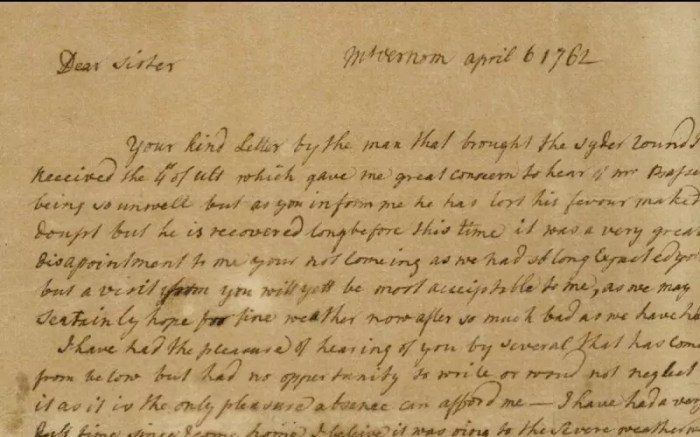 Dear Sister Mt vernon april 6 1762
Your kind Letter by the man that brought the syder round I
Received the 4th of ult which gave me great concern to hear of mr Basse
being so unwell but as you inform me he has lost his fevour makes
doupt but he is recovered long before this time it was a very great
disapointment to me your not comeing as we had so long Expected you
but a visit from you will yett be most acciptable to me, as we may
sertainly hope for fine weather now after so much bad as we have ha
I have had the pleasure of hearing of you by several that has come
from below but had no oppertunity to write or woud not neglect
it as it is the only pleasure absence can afford me — I have had a very
dull time since I come home I beleive it was oing to the severe weather